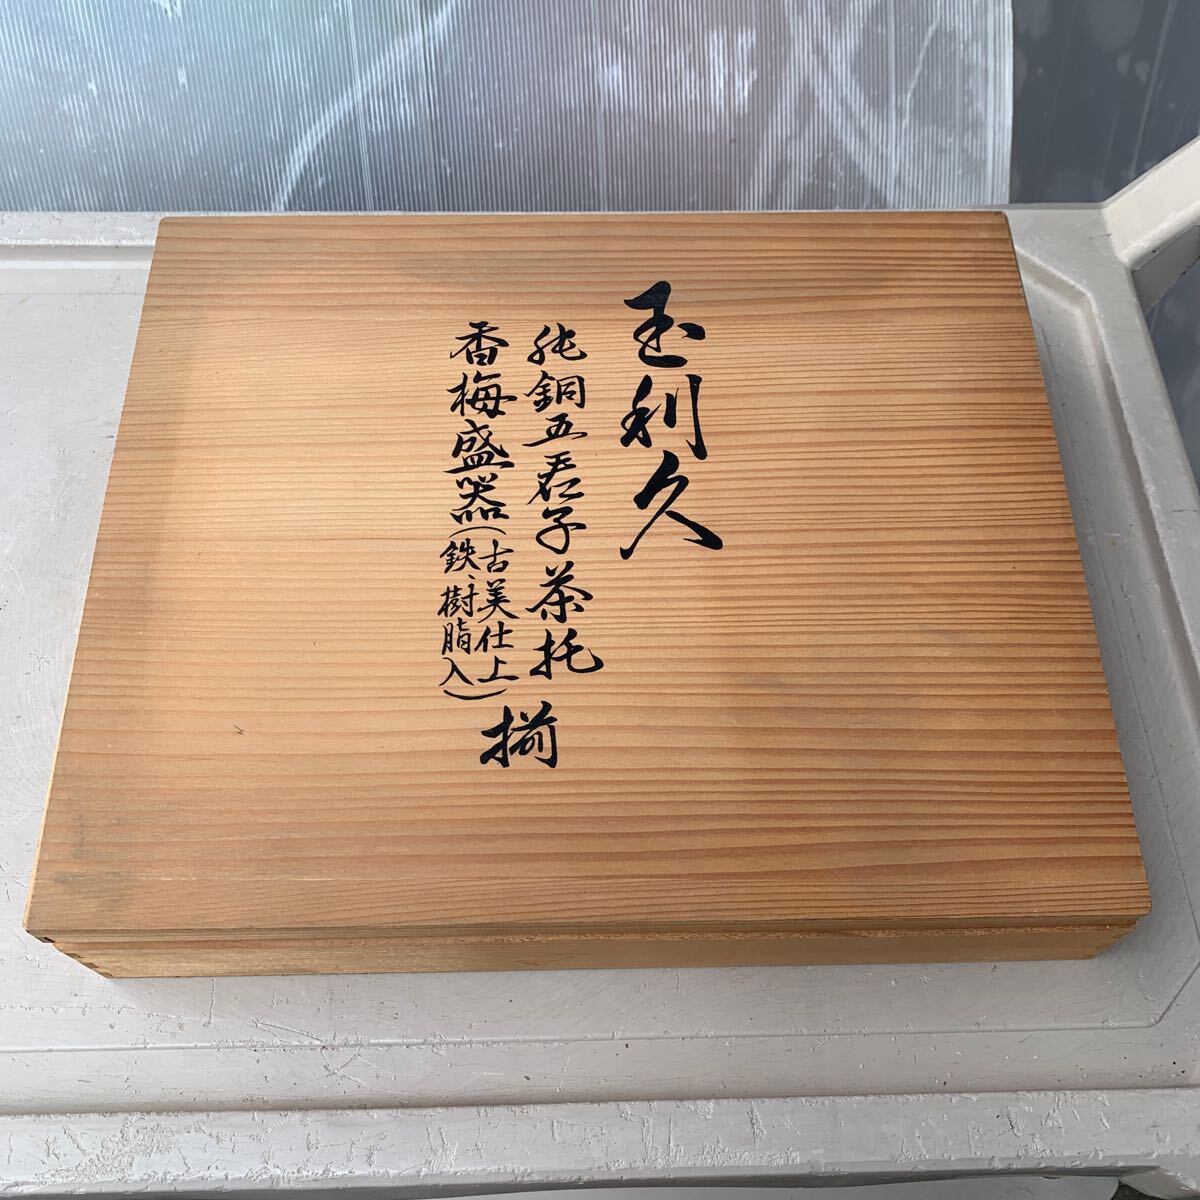 玉利久
純銅五君子茶托
香梅盛器(古美仕上
鉄、樹脂入)
揃